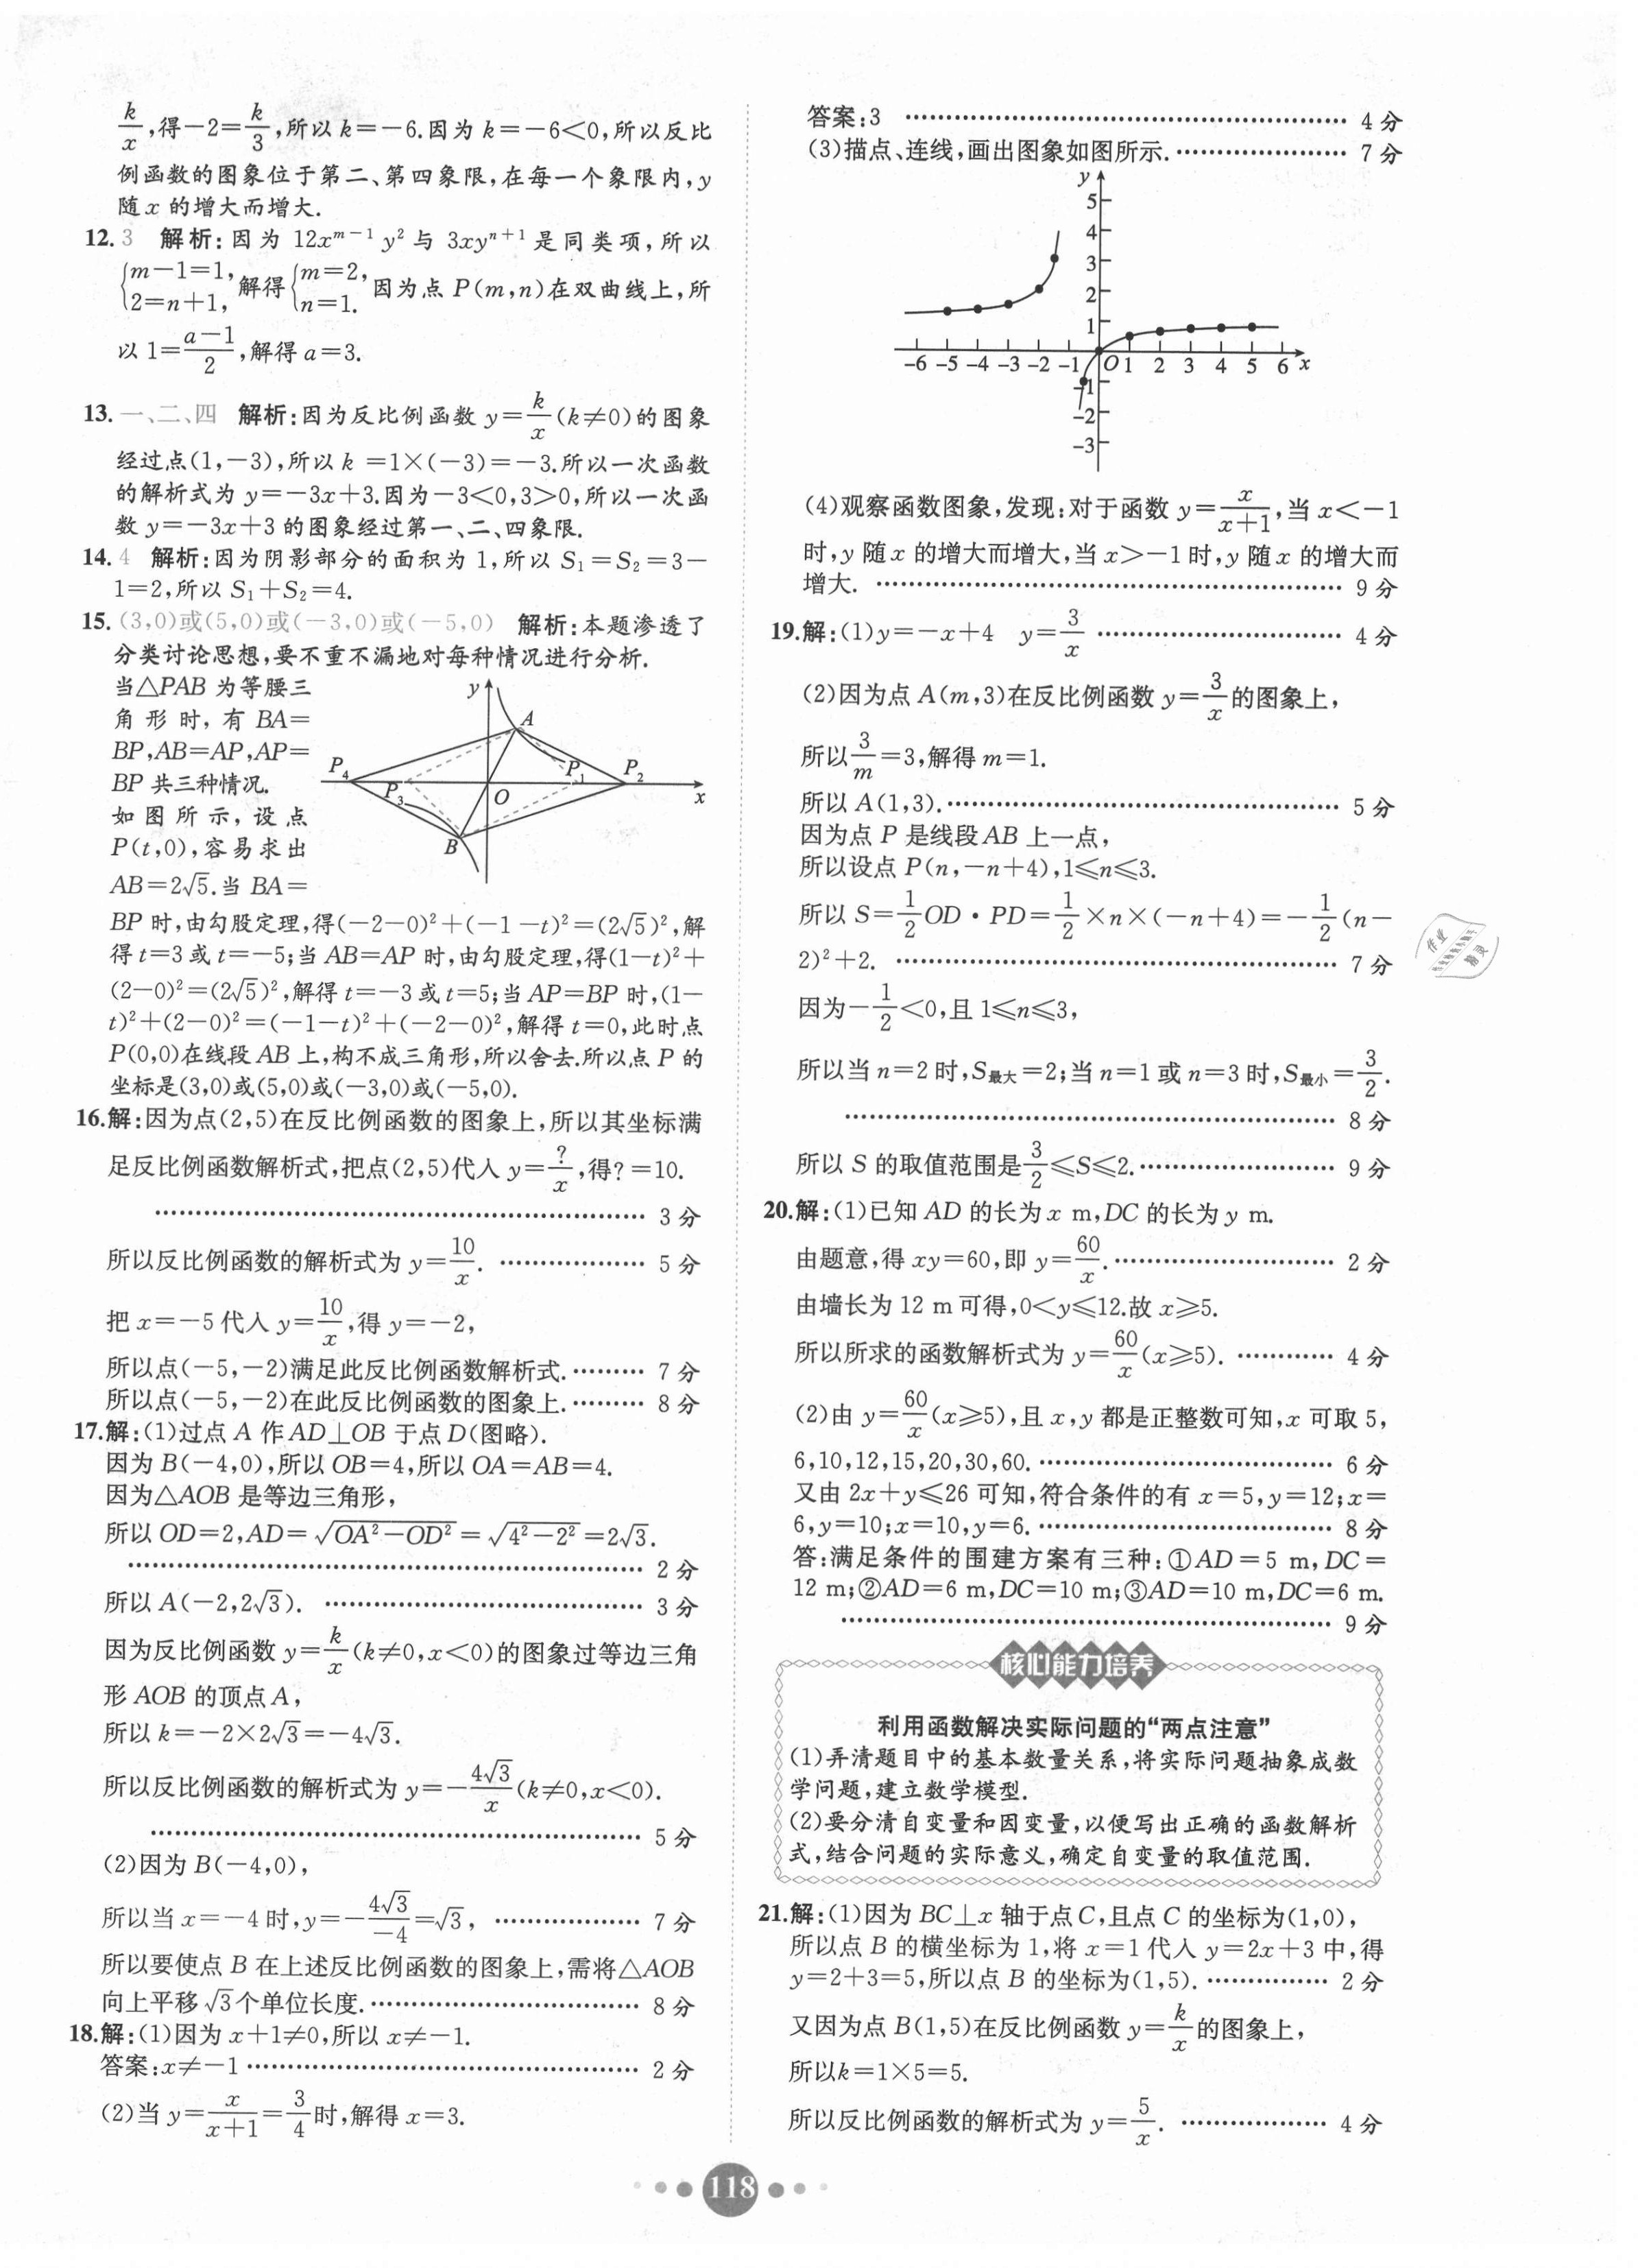 k/x,得-2=k/3,所以k=-6.因为k=-6<0,所以反比
例函数的图象位于第二、第四象限,在每一个象限内,y
随x的增大而增大.
12. 3 解析:因为 12xᵐ⁻¹y² 与 3xyⁿ⁺¹ 是同类项,所以
{m-1=1, 2=n+1, 解得{m=2, n=1. 因为点P(m,n)在双曲线上,所
以1=(a-1)/2,解得a=3.
13. 一、二、四 解析:因为反比例函数y=k/x(k≠0)的图象
经过点(1,-3),所以k=1×(-3)=-3.所以一次函数
的解析式为y=-3x+3.因为-3<0,3>0,所以一次函
数y=-3x+3的图象经过第一、二、四象限.
14. 4 解析:因为阴影部分的面积为1,所以S₁=S₂=3-
1=2,所以S₁+S₂=4.
15. (3,0)或(5,0)或(-3,0)或(-5,0) 解析:本题渗透了
分类讨论思想,要不重不漏地对每种情况进行分析.
当△PAB为等腰三
角形时,有BA=
BP,AB=AP,AP=
BP共三种情况.
如图所示,设点
P(t,0),容易求出
AB=2√5.当BA=
y A P₄ P₁ P₂ P₃ O x B
BP时,由勾股定理,得(-2-0)²+(-1-t)²=(2√5)²,解
得t=3或t=-5;当AB=AP时,由勾股定理,得(1-t)²+
(2-0)²=(2√5)²,解得t=-3或t=5;当AP=BP时,(1-
t)²+(2-0)²=(-1-t)²+(-2-0)²,解得t=0,此时点
P(0,0)在线段AB上,构不成三角形,所以舍去.所以点P的
坐标是(3,0)或(5,0)或(-3,0)或(-5,0).
16.解:因为点(2,5)在反比例函数的图象上,所以其坐标满
足反比例函数解析式,把点(2,5)代入y=?/x,得?=10.
…… 3分
所以反比例函数的解析式为y=10/x. …… 5分
把x=-5代入y=10/x,得y=-2,
所以点(-5,-2)满足此反比例函数解析式. …… 7分
所以点(-5,-2)在此反比例函数的图象上. …… 8分
17.解:(1)过点A作AD⊥OB于点D(图略).
因为B(-4,0),所以OB=4,所以OA=AB=4.
因为△AOB是等边三角形,
所以OD=2,AD=√(OA²-OD²)=√(4²-2²)=2√3.
…… 2分
所以A(-2,2√3). …… 3分
因为反比例函数y=k/x(k≠0,x<0)的图象过等边三角
形AOB的顶点A,
所以k=-2×2√3=-4√3.
所以反比例函数的解析式为y=-4√3/x(k≠0,x<0).
…… 5分
(2)因为B(-4,0),
所以当x=-4时,y=-4√3/-4=√3, …… 7分
所以要使点B在上述反比例函数的图象上,需将△AOB
向上平移√3个单位长度. …… 8分
18.解:(1)因为x+1≠0,所以x≠-1.
答案:x≠-1 …… 2分
(2)当y=x/(x+1)=3/4时,解得x=3.
答案:3 …… 4分
(3)描点、连线,画出图象如图所示. …… 7分
y
5
4
3
2
1
-6 -5 -4 -3 -2 -1 O 1 2 3 4 5 6 x
-1
-2
-3
(4)观察函数图象,发现:对于函数y=x/(x+1),当x<-1
时,y随x的增大而增大,当x>-1时,y随x的增大而
增大. …… 9分
19.解:(1)y=-x+4 y=3/x …… 4分
(2)因为点A(m,3)在反比例函数y=3/x的图象上,
所以3/m=3,解得m=1.
所以A(1,3). …… 5分
因为点P是线段AB上一点,
所以设点P(n,-n+4),1≤n≤3.
所以S=1/2OD·PD=1/2×n×(-n+4)=-1/2(n-
2)²+2. …… 7分
因为-1/2<0,且1≤n≤3,
所以当n=2时,S最大=2;当n=1或n=3时,S最小=3/2.
…… 8分
所以S的取值范围是3/2≤S≤2. …… 9分
20.解:(1)已知AD的长为x m,DC的长为y m.
由题意,得xy=60,即y=60/x. …… 2分
由墙长为12 m可得,0<y≤12.故x≥5.
所以所求的函数解析式为y=60/x(x≥5). …… 4分
(2)由y=60/x(x≥5),且x,y都是正整数可知,x可取5,
6,10,12,15,20,30,60. …… 6分
又由2x+y≤26可知,符合条件的有x=5,y=12;x=
6,y=10;x=10,y=6. …… 8分
答:满足条件的围建方案有三种:①AD=5 m,DC=
12 m;②AD=6 m,DC=10 m;③AD=10 m,DC=6 m.
…… 9分
核心能力培养
利用函数解决实际问题的“两点注意”
(1)弄清题目中的基本数量关系,将实际问题抽象成数
学问题,建立数学模型.
(2)要分清自变量和因变量,以便写出正确的函数解析
式,结合问题的实际意义,确定自变量的取值范围.
21.解:(1)因为BC⊥x轴于点C,且点C的坐标为(1,0),
所以点B的横坐标为1,将x=1代入y=2x+3中,得
y=2+3=5,所以点B的坐标为(1,5). …… 2分
又因为点B(1,5)在反比例函数y=k/x的图象上,
所以k=1×5=5.
所以反比例函数的解析式为y=5/x. …… 4分
作业
精灵
118